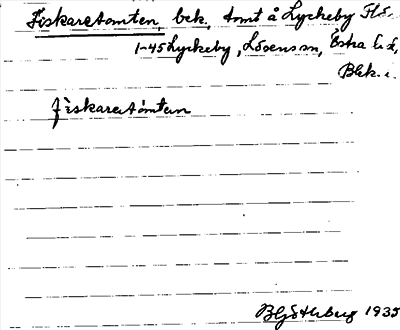 Fiskaretomten, bek, tomt å Lyckeby Fls.
1-45 Lyckeby, Lösens sn, Östra hd,
Blek. l.
fiskaretómten
1935